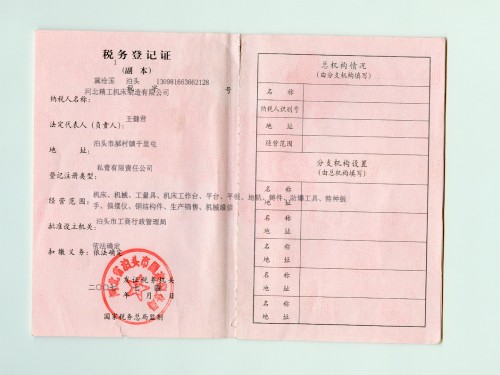 税务登记证
(副 本)
冀沧国 泊头 130981663662128
号
河北精工机床制造有限公司
纳税人名称:
法定代表人(负责人):
泊头市郝村镇千里屯
地 址:
私营有限责任公司
登记注册类型:
机床、机械、工量具、机床工作台、平台、平板、地轨、铸件、防爆工具、特种扳
经 营 范 围:
手、偏摆仪、钢结构件、生产销售、机械维修
泊头市工商行政管理局
批准设立机关:
依法确定
扣 缴 义 务:依法确定
发证税务机关
年 月 日
国家税务总局监制
总机构情况
(由分支机构填写)
名 称
纳税人识别号
地 址
经营范围
分支机构设置
(由总机构填写)
名 称
地 址
名 称
地 址
名 称
地 址
名 称
地 址
名 称
地 址